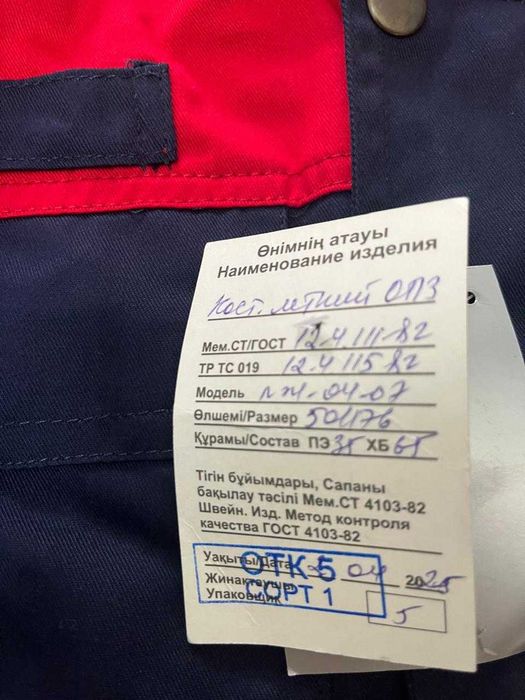 Өнімнің атауы
Наименование изделия
Кост. летний ОПЗ
Мем.СТ/ГОСТ 12.4 111-82
ТР ТС 019 12.4 115 82
Модель лж-04-07
Өлшемі/Размер 50/176
Құрамы/Состав ПЭ 35 ХБ 65
Тігін бұйымдары, Сапаны
бақылау тәсілі Мем.СТ 4103-82
Швейн. Изд. Метод контроля
качества ГОСТ 4103-82
Уақыты/Дата 04 2025
Жинақтаушы
Упаковщик 5
ОТК 5
СОРТ 1